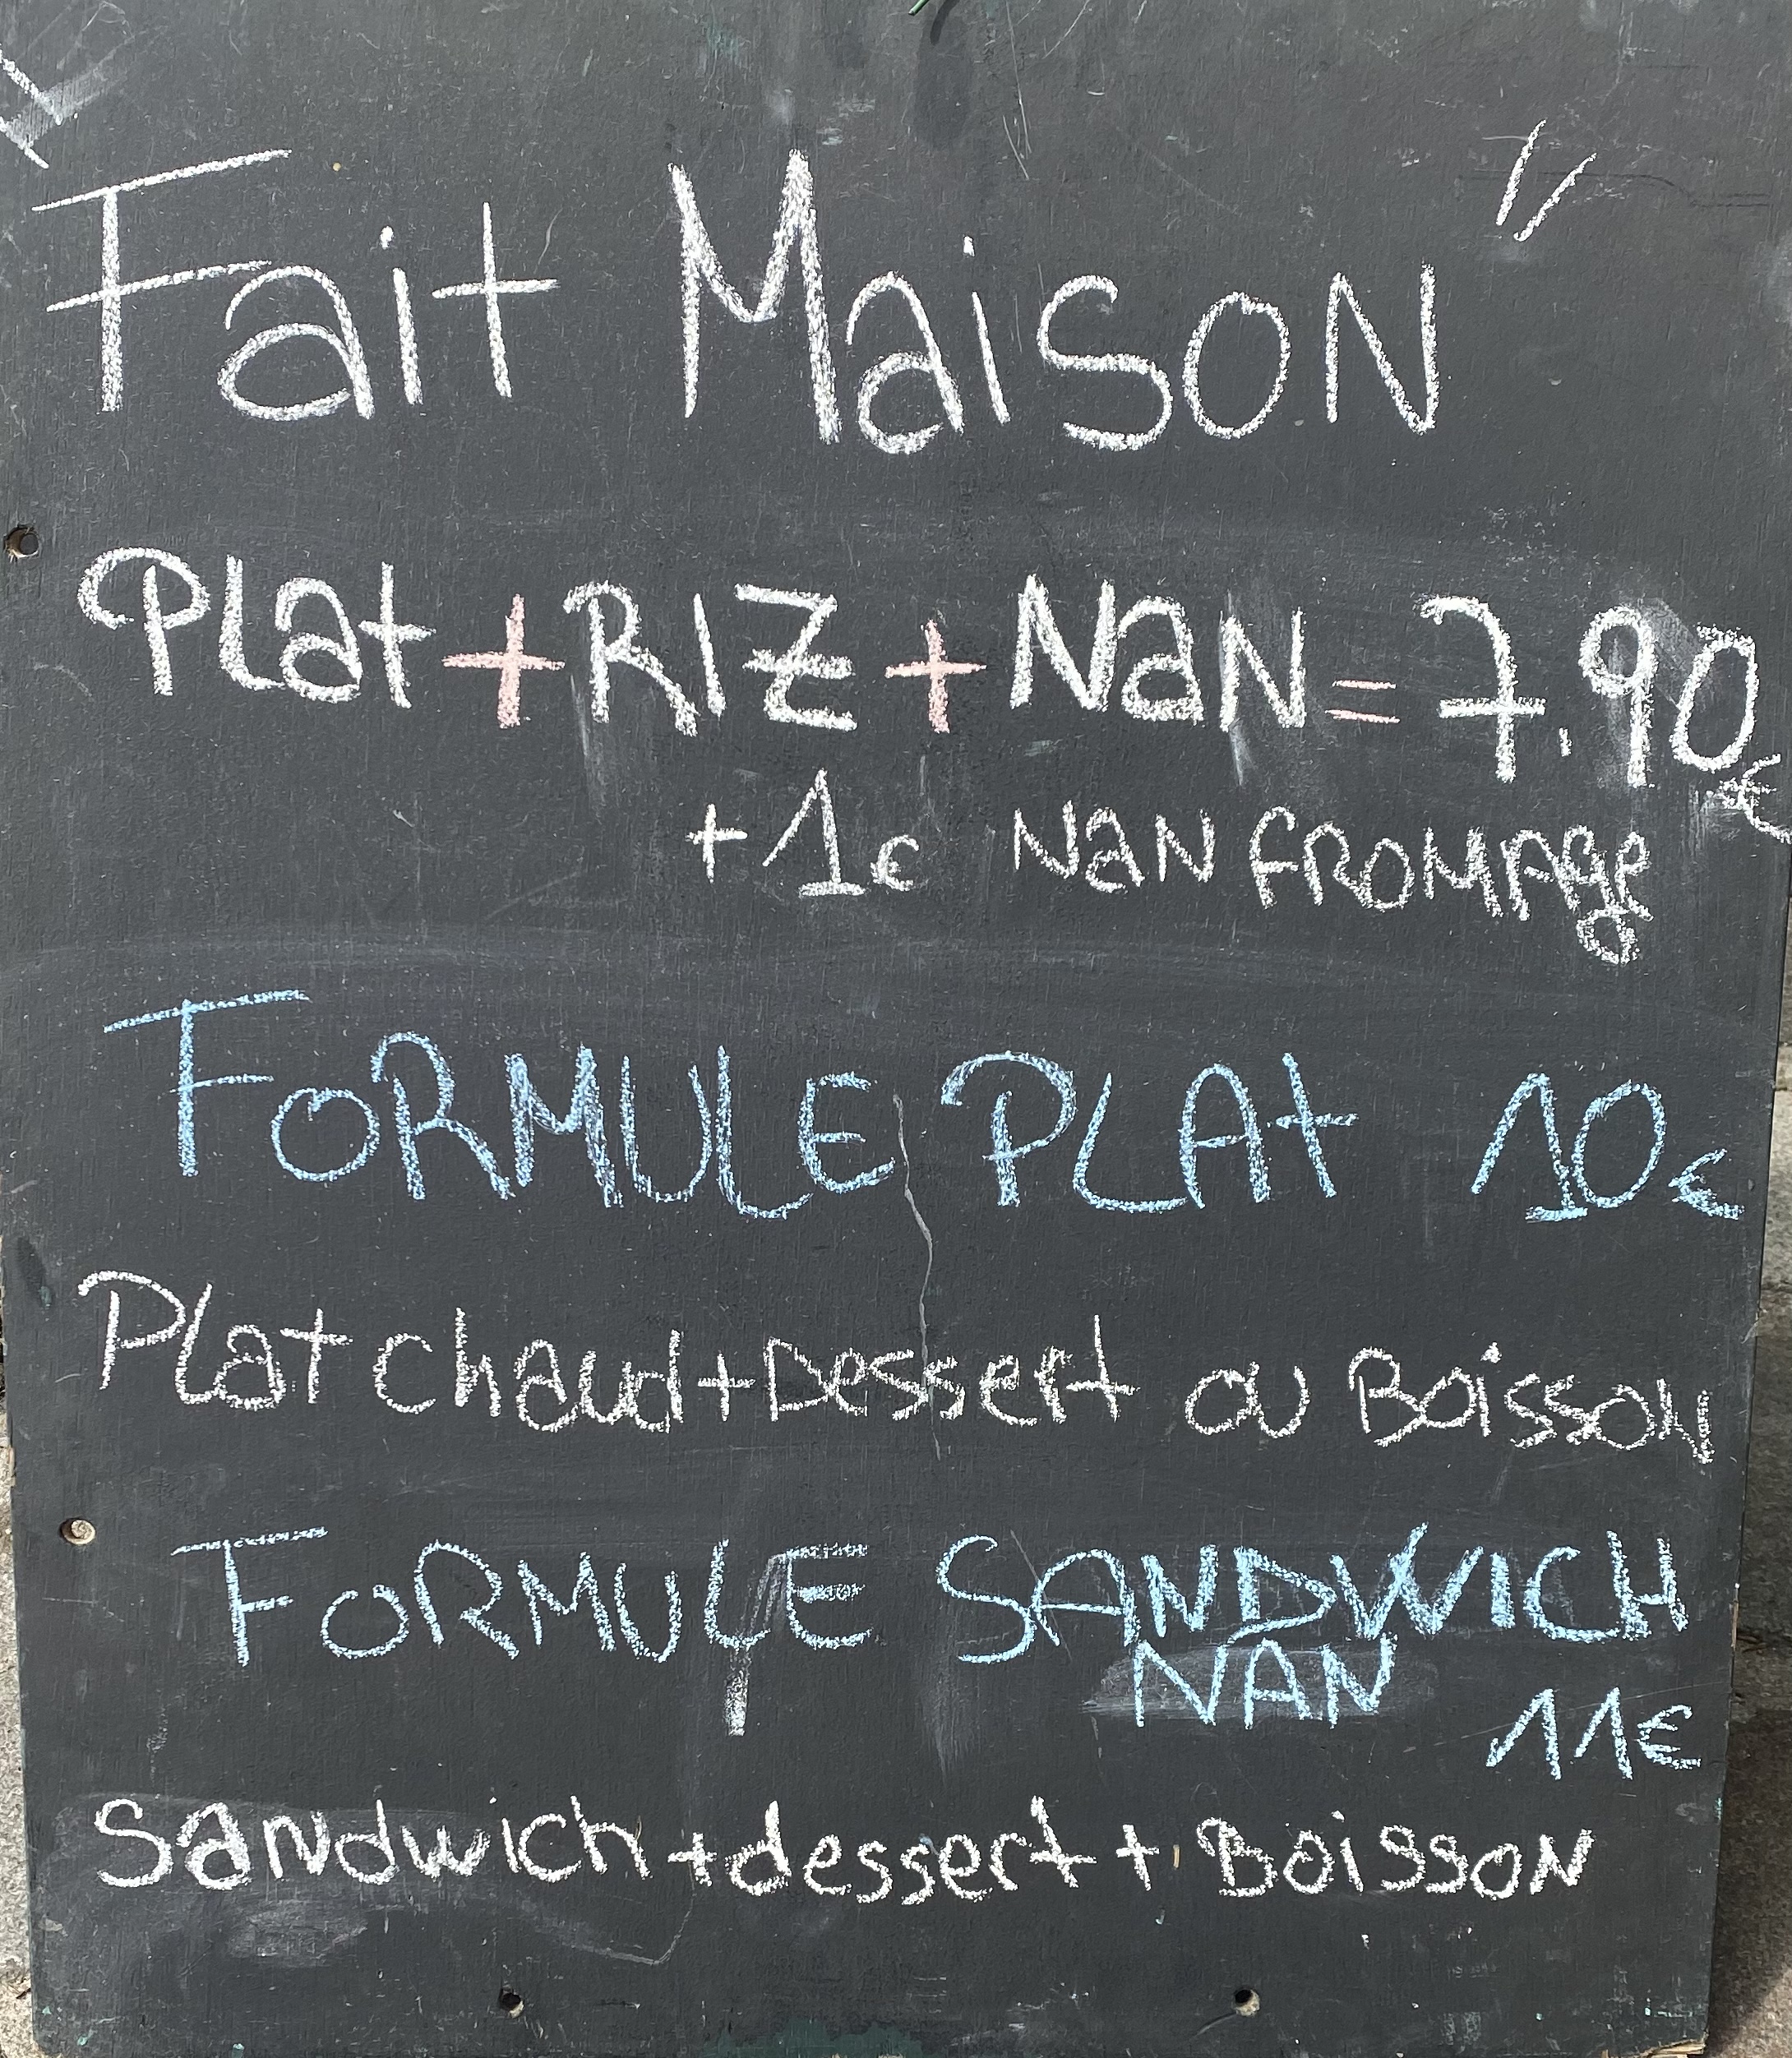 Fait Maison "
Plat + RIZ + NaN = 7.90€
+ 1€ NaN FROMAge
FORMULE PLAt 10€
Plat chaud + Dessert ou Boisson
FORMULE SANDWICH
NAN
11€
Sandwich + dessert + Boisson